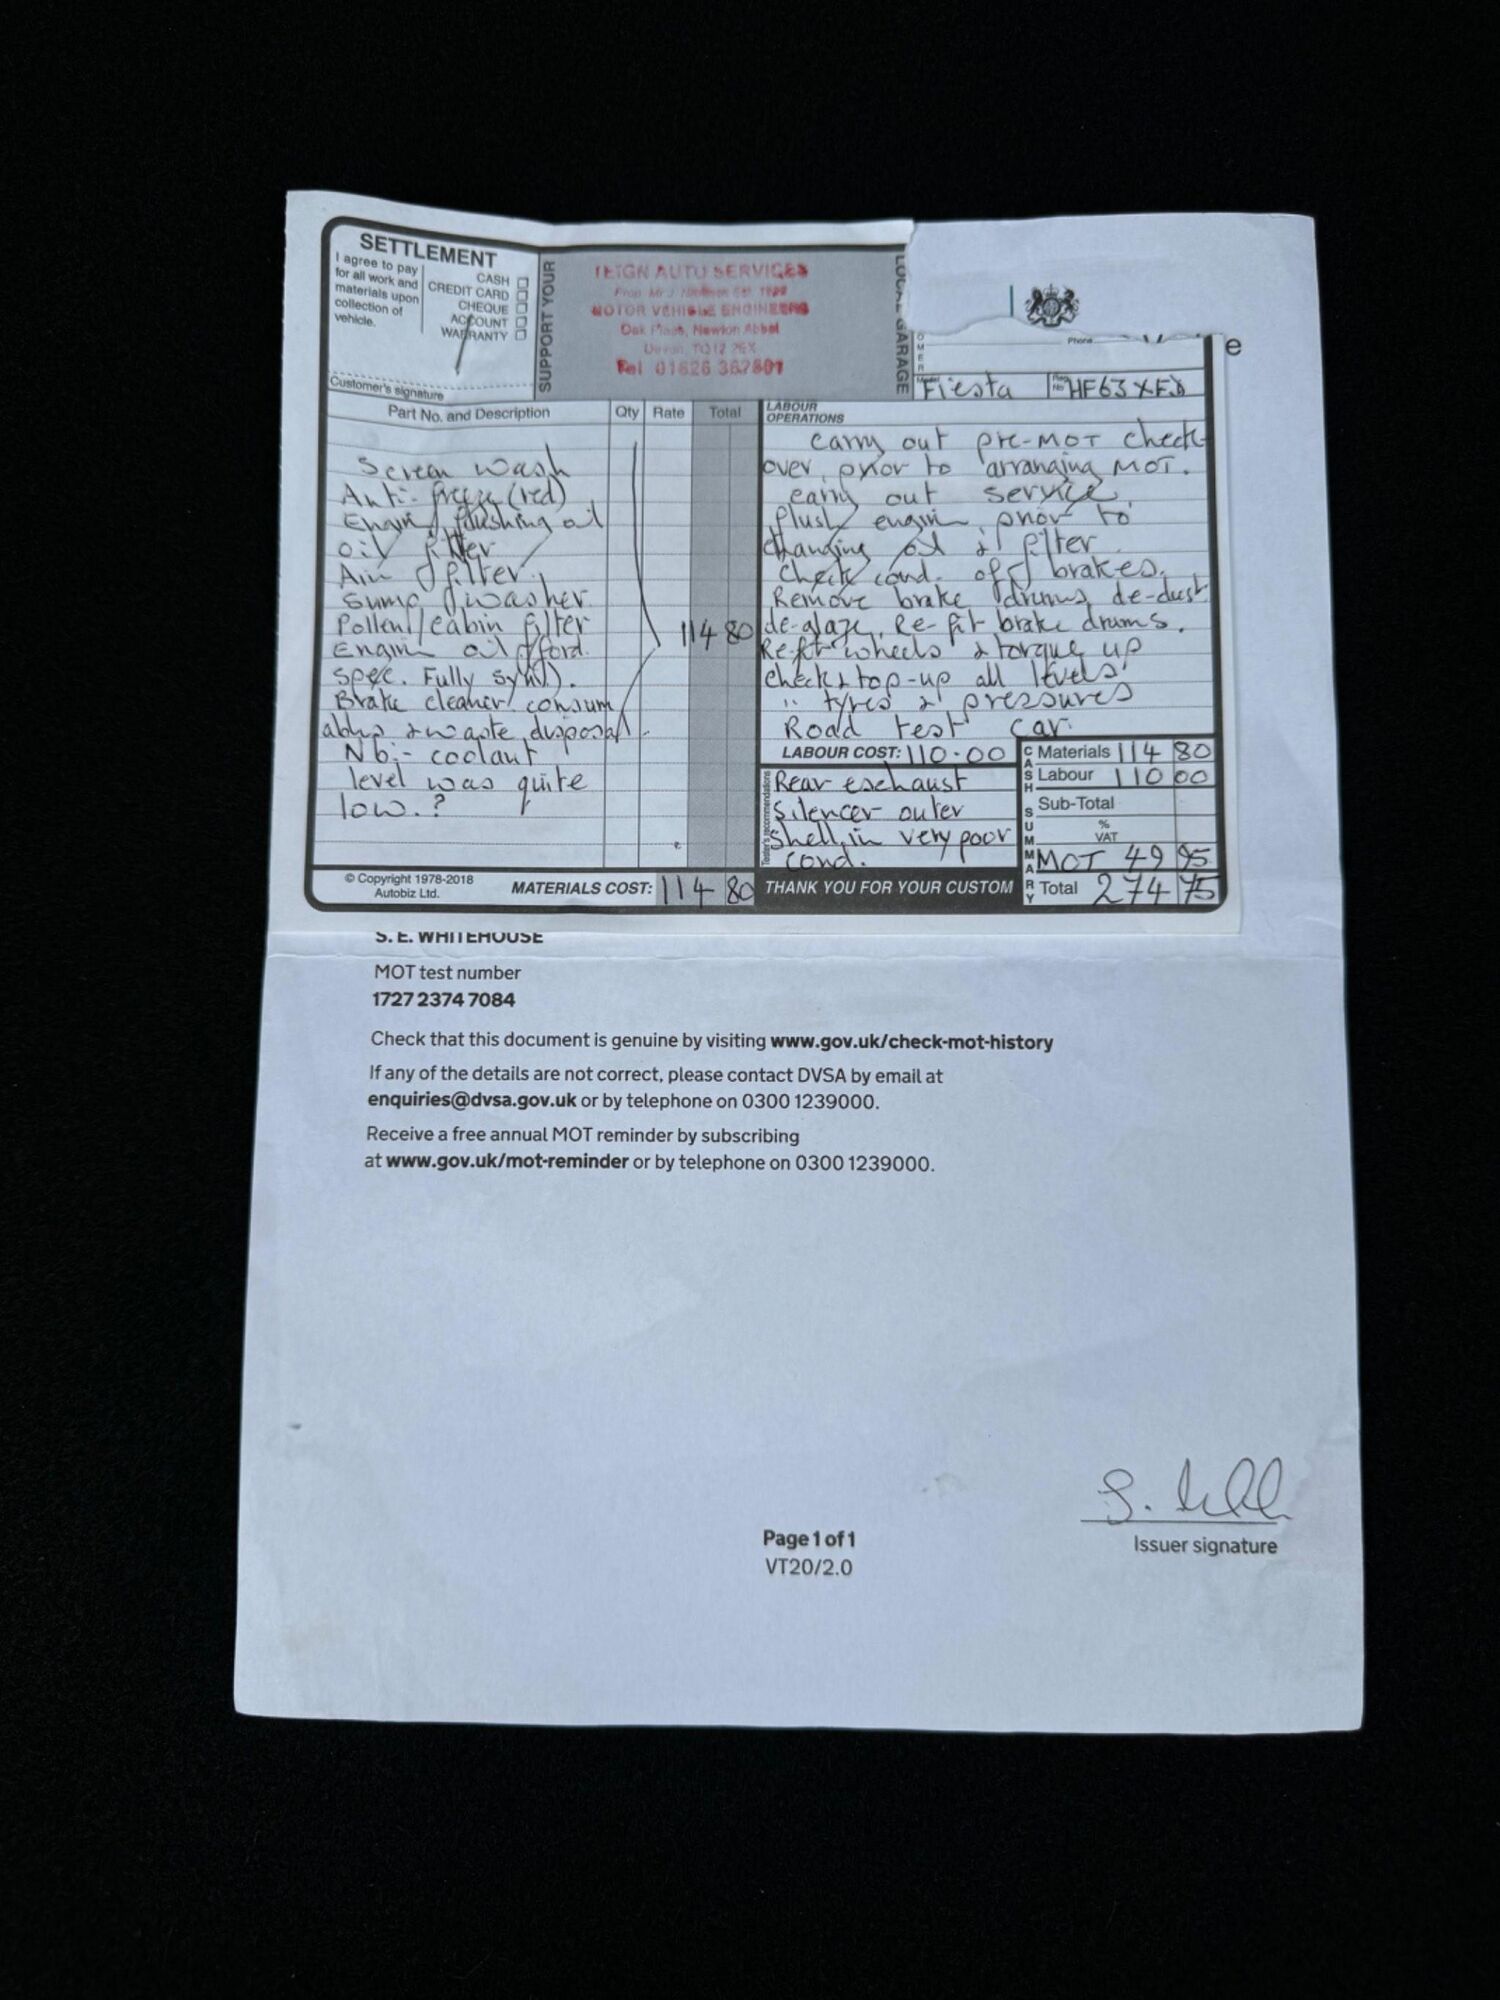 SETTLEMENT
I agree to pay
for all work and
materials upon
collection of
vehicle.
CASH
CREDIT CARD
CHEQUE
ACCOUNT
WARRANTY
Customer's signature
SUPPORT YOUR
TEIGN AUTO SERVICES
Prop. Mr J.
MOTOR VEHICLE ENGINEERS
Newton Abbot
Devon, TQ12
Tel 01626 367801
LOCAL GARAGE
Phone
e
Model
Fiesta
Reg No
HF63XFD
Part No. and Description
Qty
Rate
Total
Screen wash
Anti-freeze (red)
Engine flushing oil
oil filter
Air filter.
Sump washer
Pollen/cabin filter
114 80
Engine oil (ford.
spec. Fully synth).
Brake cleaner, consum
ables & waste disposal.
Nb:- coolant
level was quite
low.?
© Copyright 1978-2018
Autobiz Ltd.
MATERIALS COST: 114 80
LABOUR
OPERATIONS
carry out pre-MOT check-
over, prior to arranging MOT.
carry out service,
flush engine, prior to
changing oil & filter
Check cond. of brakes.
Remove brake drums, de-dust
de-glaze, Re-fit brake drums.
Re-fit wheels & torque up
check & top-up all levels
" tyres & pressures
Road test car.
LABOUR COST: 110.00
Tester's recommendations
Rear exhaust
Silencer outer
shell, in very poor
cond.
CASH SUMMARY
Materials 114 80
Labour 110 00
Sub-Total
%
VAT
MOT 49 95
Total 274 75
THANK YOU FOR YOUR CUSTOM
S. E. WHITEHOUSE
MOT test number
1727 2374 7084
Check that this document is genuine by visiting www.gov.uk/check-mot-history
If any of the details are not correct, please contact DVSA by email at
enquiries@dvsa.gov.uk or by telephone on 0300 1239000.
Receive a free annual MOT reminder by subscribing
at www.gov.uk/mot-reminder or by telephone on 0300 1239000.
Page 1 of 1
VT20/2.0
Issuer signature